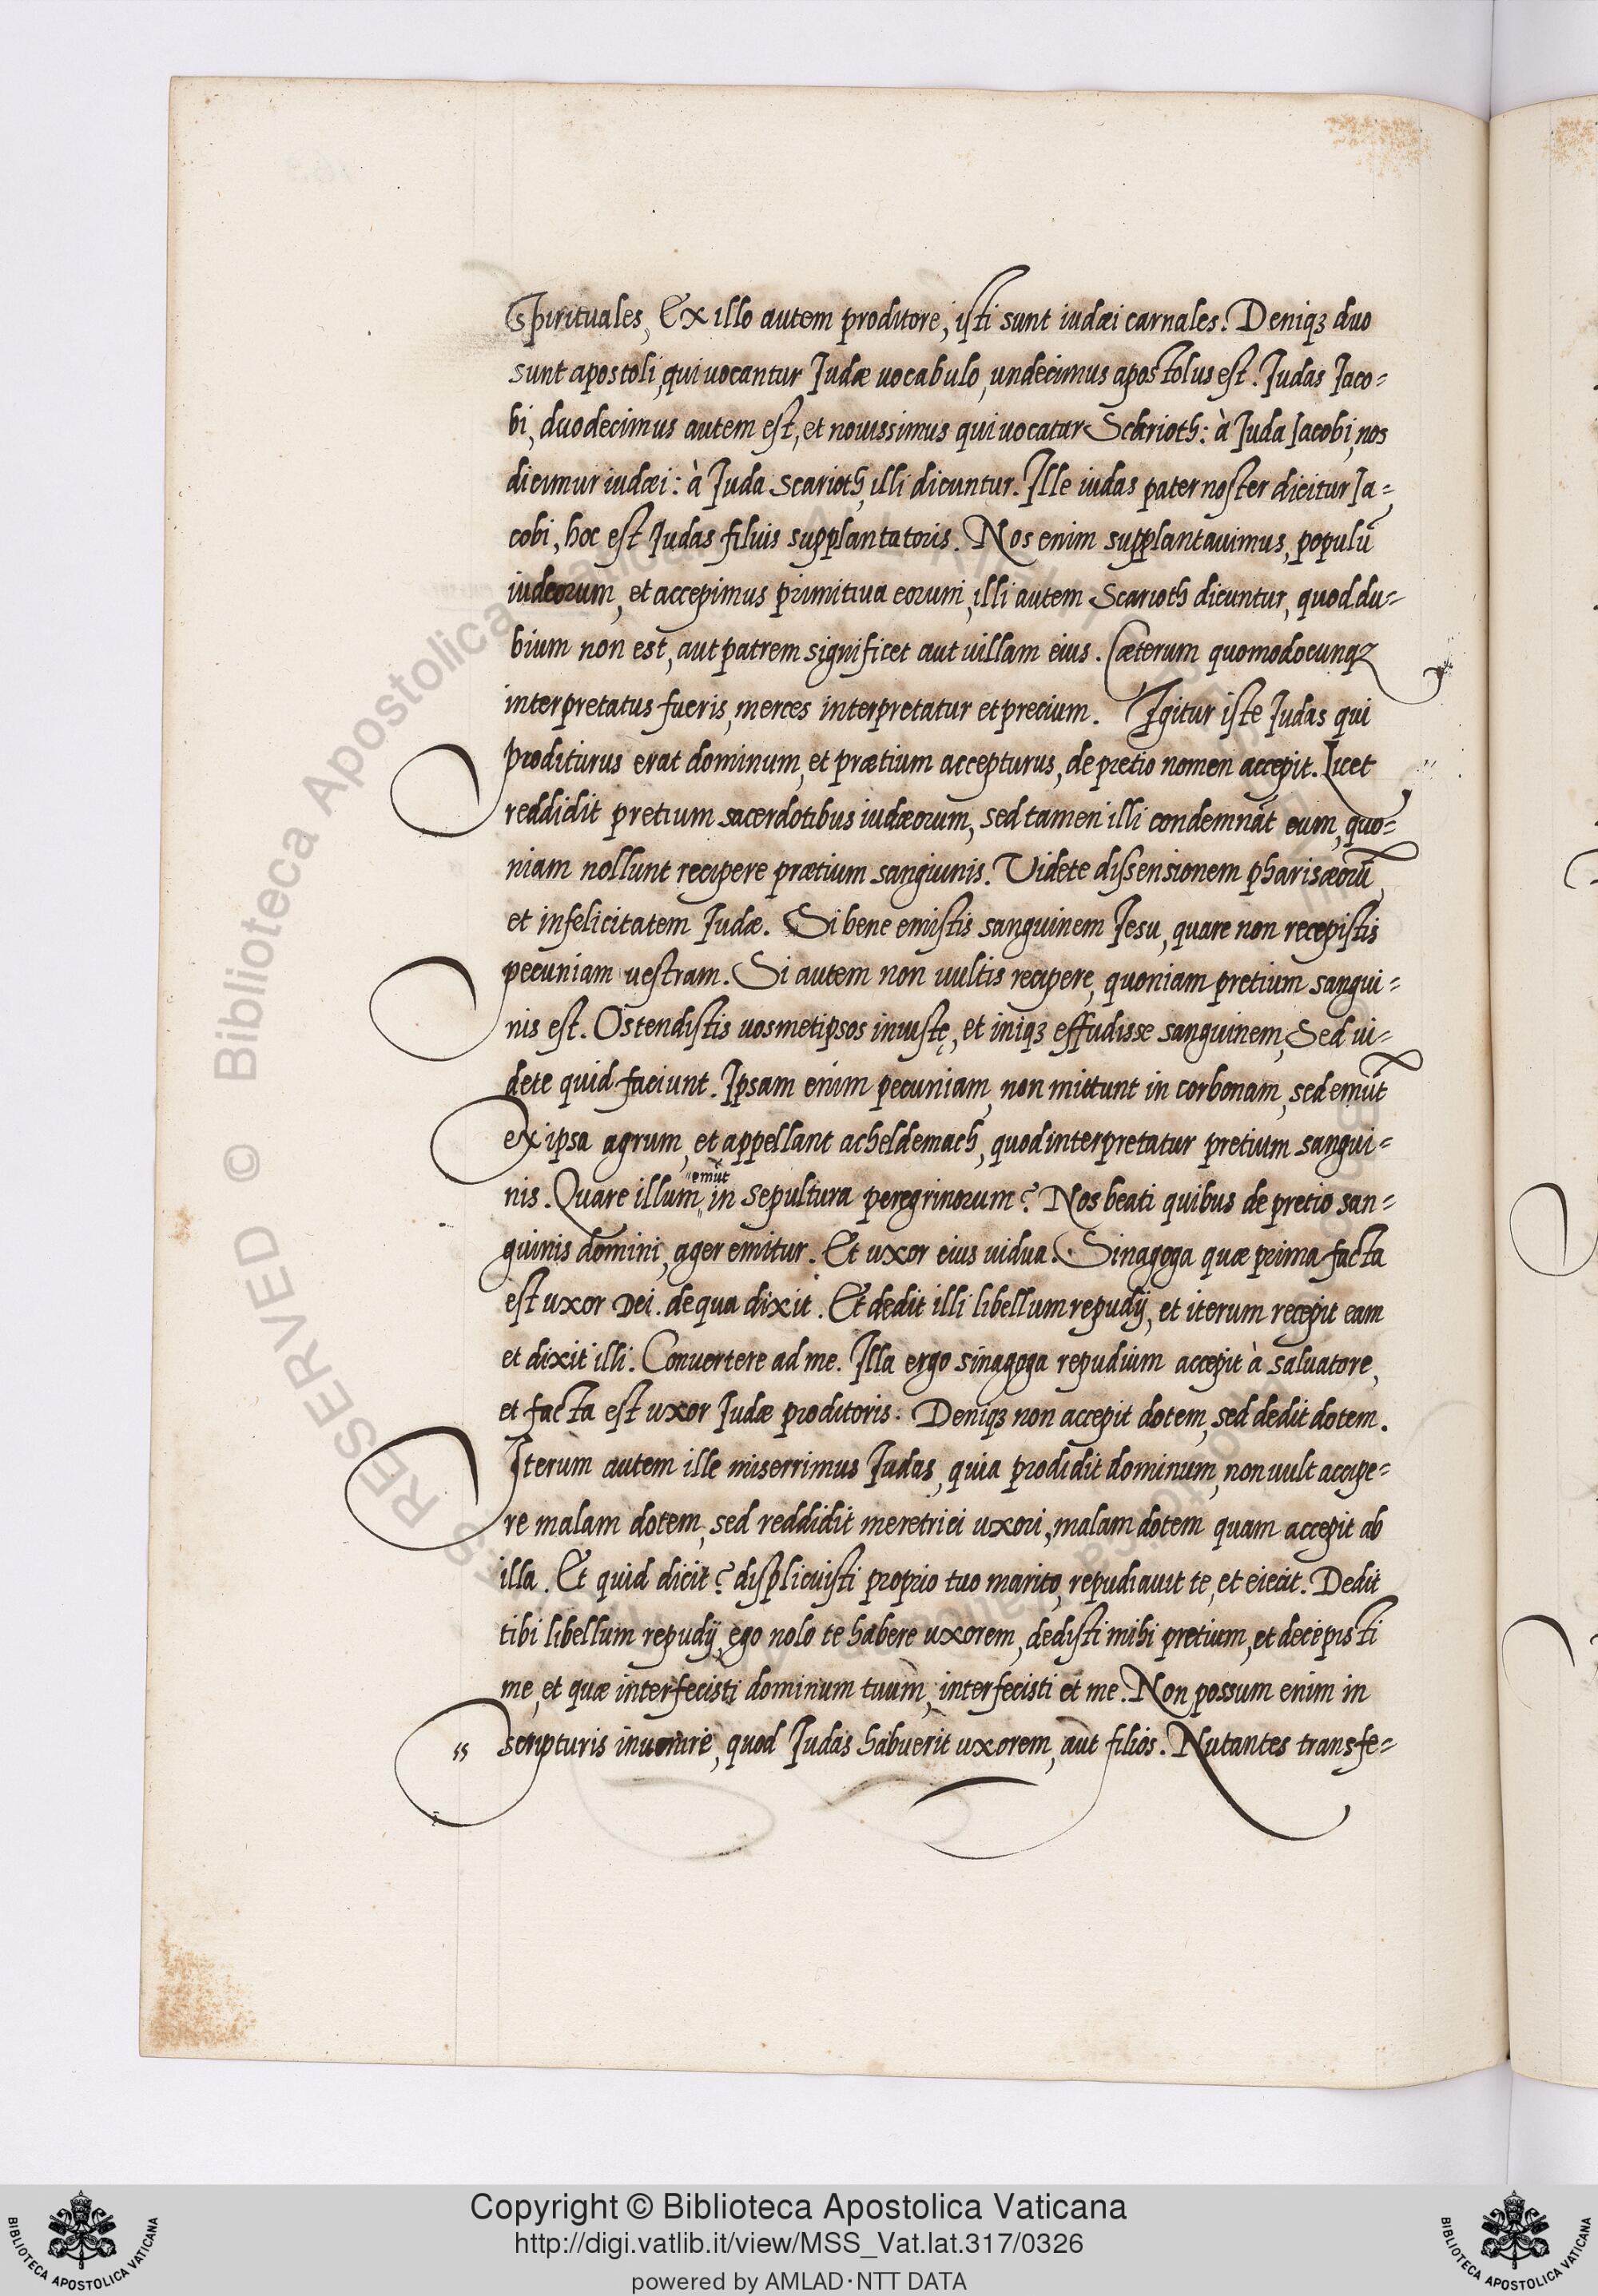 Spirituales, Ex illo autem proditore, isti sunt iudæi carnales. Deniqꝫ duo
sunt apostoli, qui vocantur Judæ vocabulo, undecimus apostolus est. Judas Jaco=
bi, duodecimus autem est, et novissimus qui vocatur Scarioth: à Juda Jacobi, nos
dicimur iudæi: à Juda Scarioth, illi dicuntur. Ille iudas pater noster dicitur Ja=
cobi, hoc est Judas filius supplantatoris. Nos enim supplantavimus, populū
iudeorum, et accepimus primitiva eorum, illi autem Scarioth dicuntur, quod du=
bium non est, aut patrem significet aut villam eius. Cæterum quomodocunqꝫ
interpretatus fueris, merces interpretatur et precium. Igitur iste Judas qui
proditurus erat dominum, et prætium accepturus, de pretio nomen accepit. Licet
reddidit pretium sacerdotibus iudæorum, sed tamen illi condemnāt eum, quo=
niam nollunt recipere prætium sanguinis. Videte dissensionem pharisæorū,
et infelicitatem Judæ. Si bene emistis sanguinem Jesu, quare non recepistis
pecuniam vestram. Si autem non vultis recipere, quoniam pretium sangui=
nis est. Ostendistis vosmetipsos iniustę, et iniqꝫ effudisse sanguinem, Sed vi=
dete quid faciunt. Ipsam enim pecuniam, non mittunt in corbonam, sed emūt
ex ipsa agrum, et appellant acheldemach, quod interpretatur pretium sangui=
nis. Quare illum "emūt in sepultura peregrinorum? Nos beati quibus de pretio san=
guinis domini, ager emitur. Et uxor eius vidua. Sinagoga quæ prima facta
est uxor Dei. de qua dixit. Et dedit illi libellum repudij, et iterum recepit eam
et dixit illi. Convertere ad me. Illa ergo sinagoga repudium accepit à salvatore,
et facta est uxor Judæ proditoris. Deniqꝫ non accepit dotem, sed dedit dotem.
Iterum autem ille miserrimus Judas, quia prodidit dominum, non vult accipe=
re malam dotem, sed reddidit meretrici uxori, malam dotem quam accepit ab
illa. Et quid dicit? displicuisti proprio tuo marito, repudiavit te, et eiecit. Dedit
tibi libellum repudij, ego nolo te habere uxorem, dedisti mihi pretium, et decepisti
me, et quæ interfecisti dominum tuum, interfecisti et me. Non possum enim in
ss scripturis invenire, quod Judas habuerit uxorem, aut filios. Nutantes transfe=
Copyright © Biblioteca Apostolica Vaticana
http://digi.vatlib.it/view/MSS_Vat.lat.317/0326
powered by AMLAD·NTT DATA
BIBLIOTECA APOSTOLICA VATICANA
BIBLIOTECA APOSTOLICA VATICANA